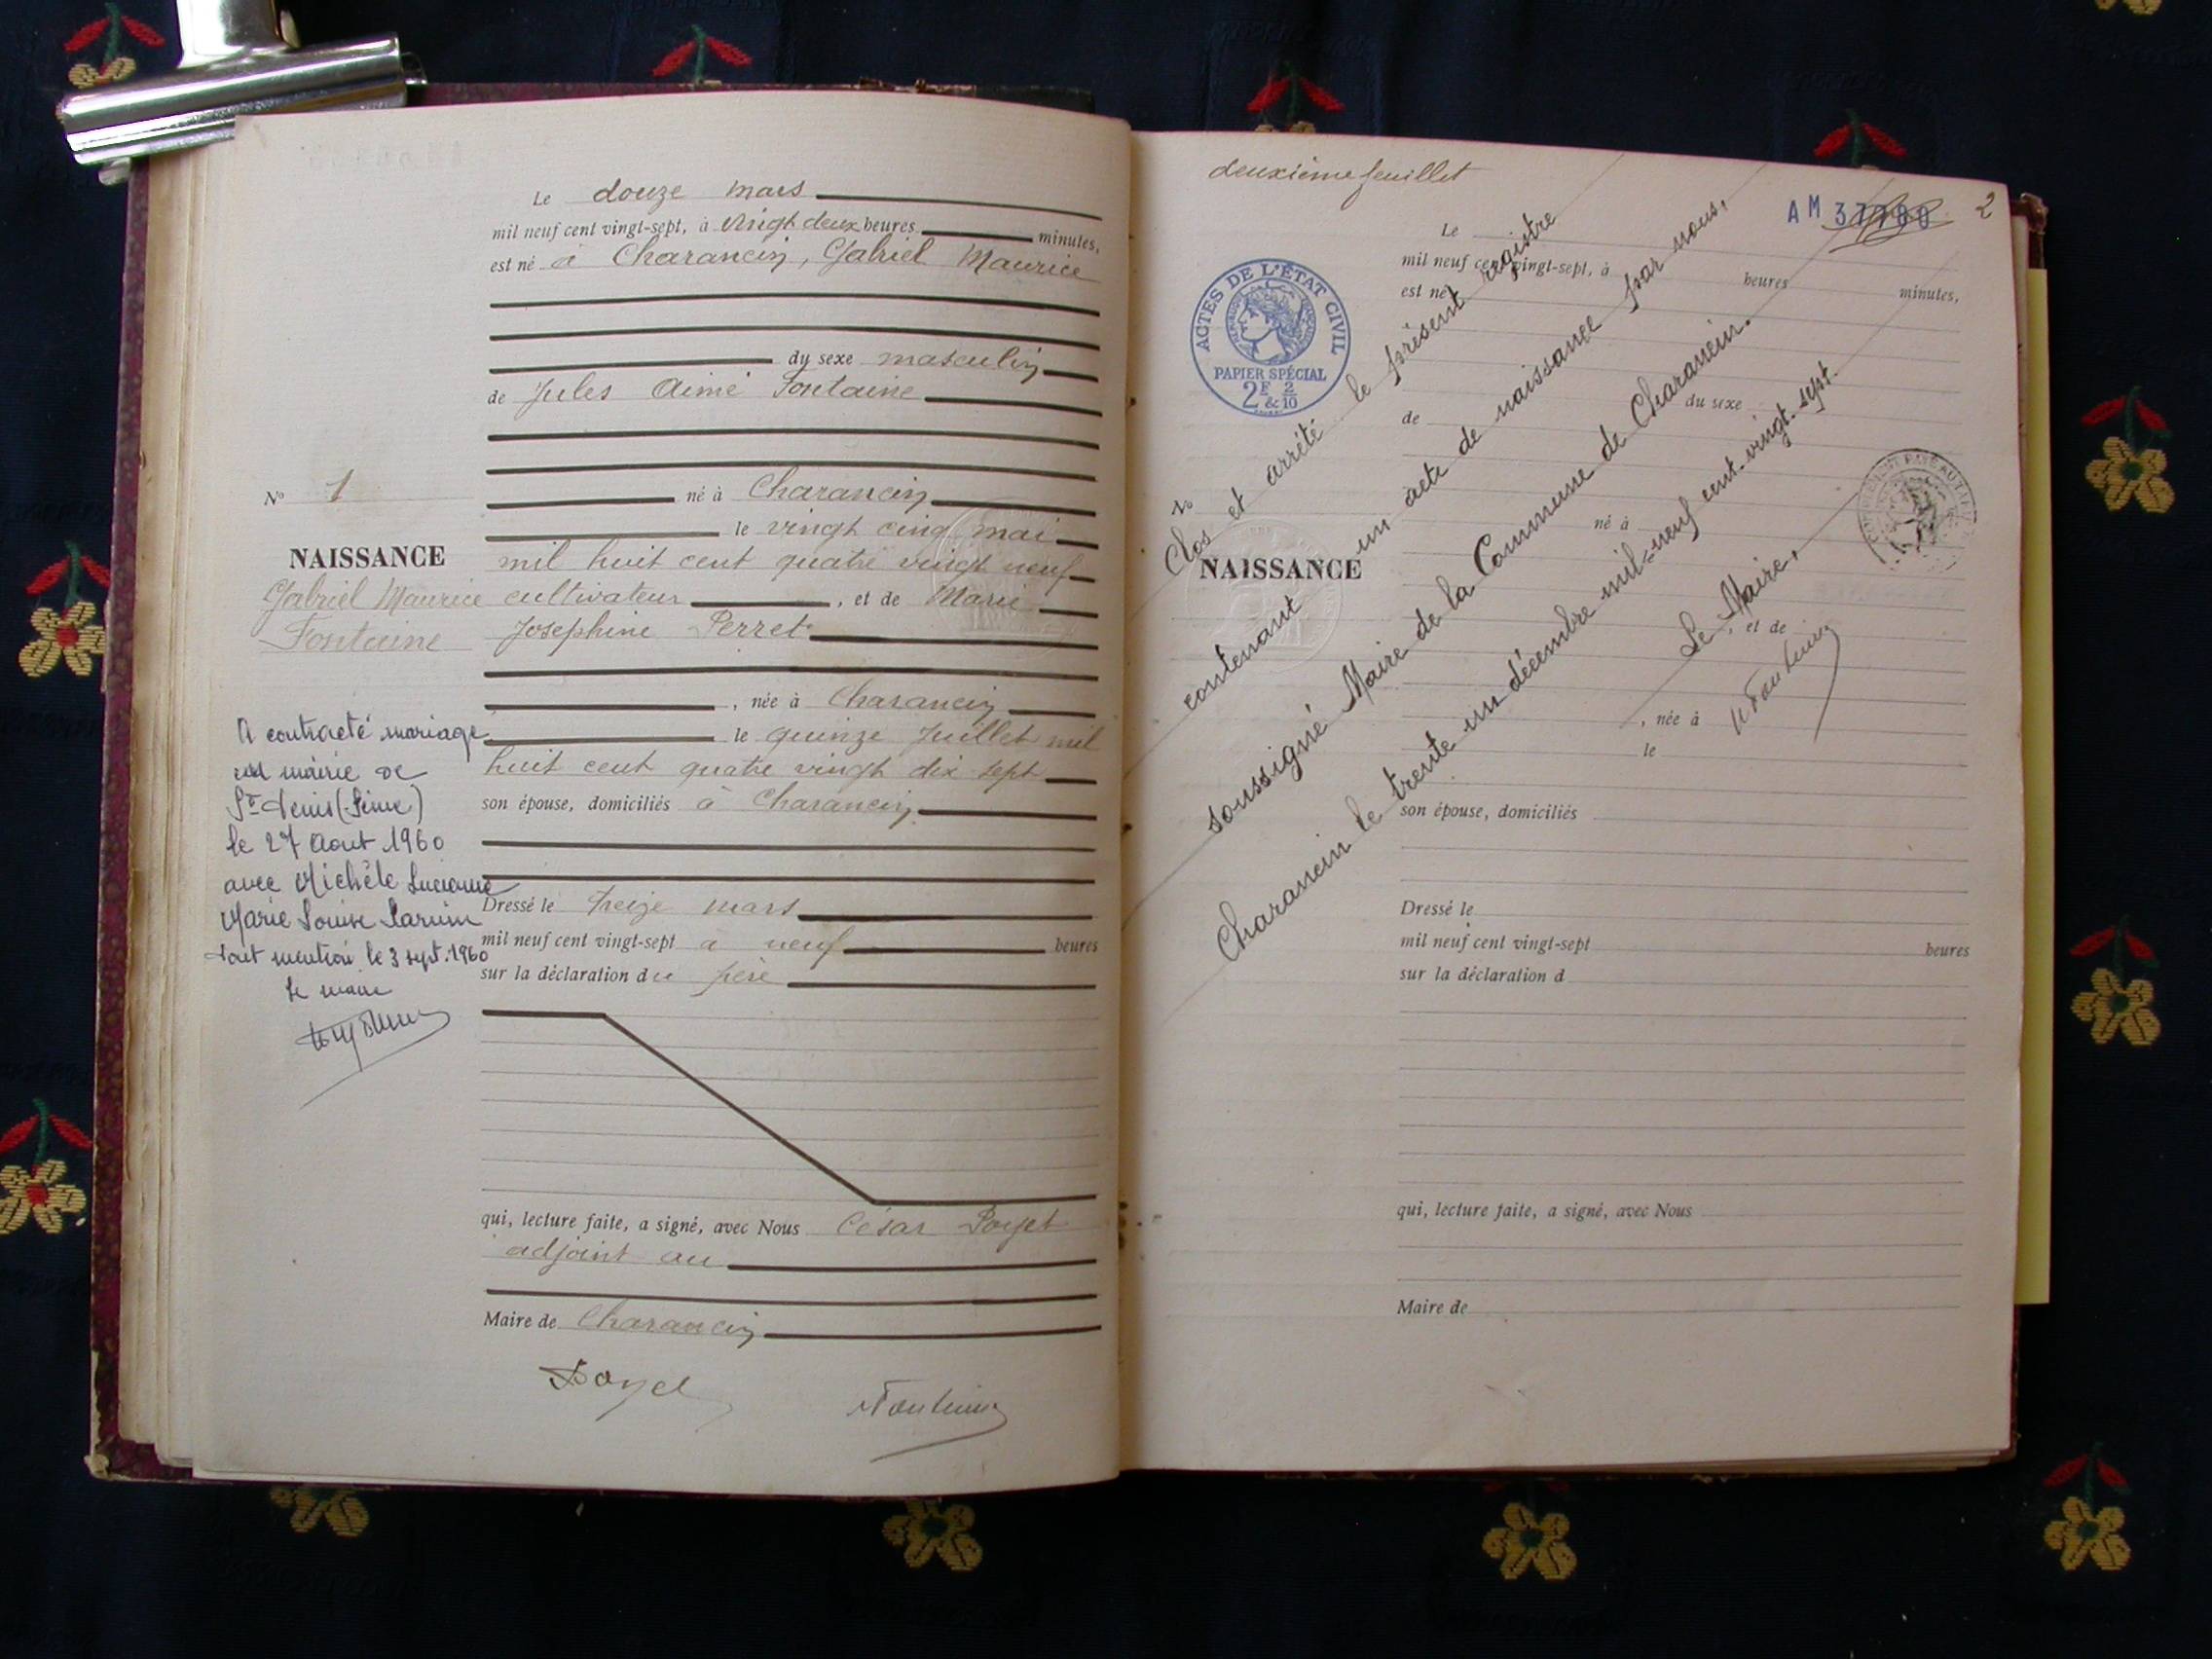 Le douze mars
mil neuf cent vingt-sept, à vingt deux heures minutes,
est né à Charancin, Gabriel Maurice
du sexe masculin
de Jules Aimé Fontaine
né à Charancin
le vingt cinq mai
mil huit cent quatre vingt neuf
cultivateur , et de Marie
Josephine Perret
, née à Charancin
le quinze Juillet mil
huit cent quatre vingt dix sept
son épouse, domiciliés à Charancin
Dressé le treize mars
mil neuf cent vingt-sept à neuf heures
sur la déclaration du père
qui, lecture faite, a signé, avec Nous César Poyet
adjoint au
Maire de Charancin
Poyet
Fontaine
N° 1
NAISSANCE
Gabriel Maurice
Fontaine
A contracté mariage
mairie de
St denis (Seine)
le 27 Aout 1960
avec Michèle Lucienne
Marie Louise
dont mention le 3 sept. 1960
le maire
deuxième feuillet
AM 37790
2
ACTES DE L'ÉTAT CIVIL
PAPIER SPÉCIAL
2F & 2/10
Le
mil neuf cent vingt-sept, à heures minutes,
est né
du sexe
de
né à
, et de
, née à
le
son épouse, domiciliés
Dressé le
mil neuf cent vingt-sept heures
sur la déclaration d
qui, lecture faite, a signé, avec Nous
Maire de
N°
NAISSANCE
Clos et arrêté le présent registre
contenant un acte de naissance par nous,
soussigné Maire de la Commune de Charancin.
Charancin le trente un décembre mil-neuf cent-vingt-sept.
Le Maire,
Fontaine